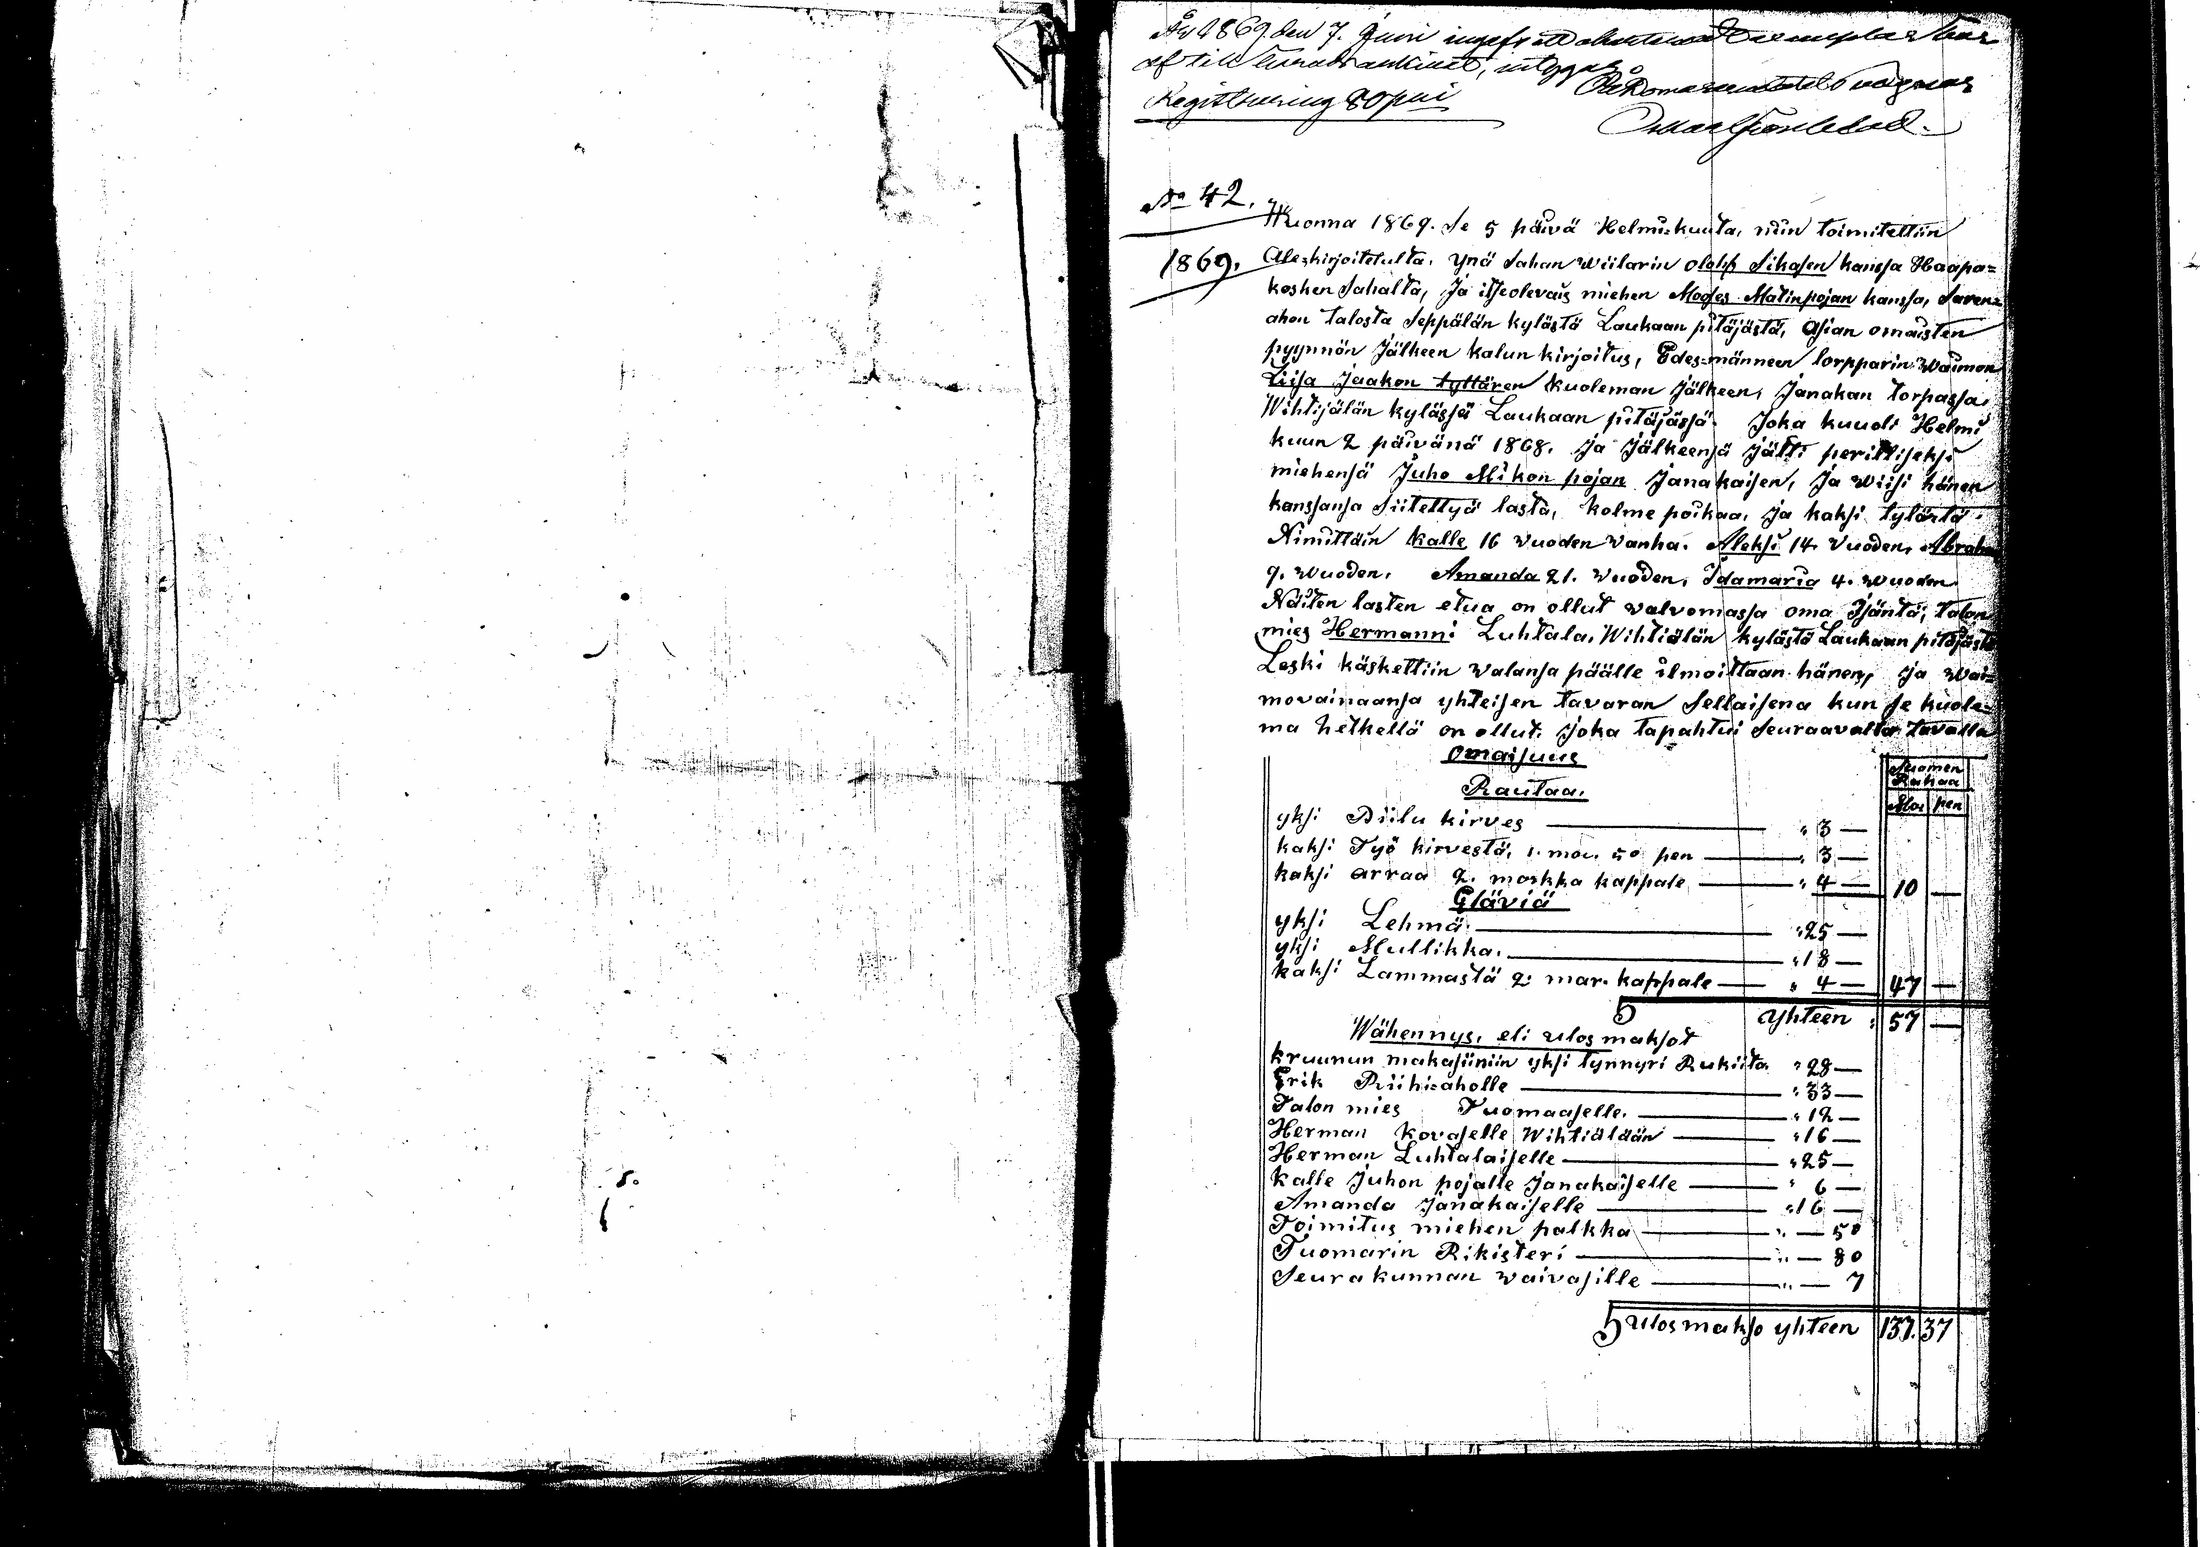 År 1869 den 7. Juni ingifvet
af till
Registrering 80 pni
På Domareembetets vägnar
No 42.
1869.
Wuonna 1869. Se 5 päivä Helmi-kuuta, niin toimitettiin
Ales kirjoitetulta, ynä Sahan wiilarin olohf Sikasen kanssa Haapa=
kosken Sahalta, Ja itseolevais miehen Moses Matinpojan kanssa, Saren=
ahon talosta Seppälän kylästä Laukaan pitäjästä, Asian omaisten
pyynnön Jälkeen kalun kirjoitus, Edes=männeen torpparin Waimon
Liisa Jaakon tyttären kuoleman Jälkeen, Janakan torpassa,
Wihtijälän kylässä Laukaan pitäjässä. Joka kuuoli Helmi
kuun 2 päivänä 1868. Ja Jälkeensä Jätti perilliseksi
miehensä Juho Mikon pojan Janakaisen, Ja Wiisi hänen
kanssansa Siitettyä lasta, kolme poikaa, Ja kaksi tytärtä.
Nimittäin Kalle 16 Vuoden Vanha. Aleksi 14. Vuoden, Abraha
9. Wuoden. Amanda 21. Wuoden, Idamaria 4. Wuoden
Näiten lasten etua on ollut valvomassa oma Isäntä; talon
mies Hermanni Luhtala, Wihtiälän kylästä Laukaan pitäjästä
Leski käskettiin Walansa päälle ilmoittaan hänen, Ja Wai=
movainaansa yhteisen tavaran Sellaisena kun se kuole=
ma hetkellä on ollut. Joka tapahtui Seuraavalla tavalla
Omaisuus
Suomen
Rahaa
Rautaa.
Mar pen
yksi Piilu kirves " 3 —
kaksi Työ kirvestä, 1. mar. 50 pen " 3 —
kaksi arraa 2. markka kappale " 4 — 10 —
Eläviä
yksi Lehmä. " 25 —
yksi Mullikka. " 18 —
kaksi Lammasta 2: mar. kappale " 4 — 47 —
Yhteen : 57 —
Wähennys, eli ulos maksot
kruunun makasiiniin yksi tynnyri Rukiita " 28 —
Erik Riihiaholle " 33 —
Talon mies Tuomaaselle. " 12 —
Herman Kovaselle Wihtiälään " 16 —
Herman Luhtalaiselle " 25 —
Kalle Juhon pojalle Janakaiselle " 6 —
Amanda Janakaiselle " 16 —
Toimitus miehen palkka " — 50
Tuomarin Rikisteri " — 80
Seurakunnan waivasille " — 7
Ulosmakso yhteen 137. 37